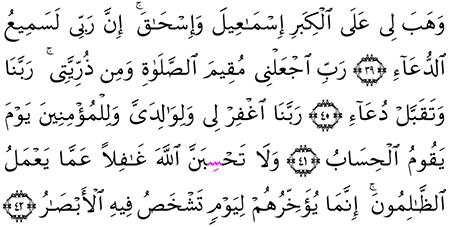 وَهَبَ لِى عَلَى ٱلْكِبَرِ إِسْمَـٰعِيلَ وَإِسْحَـٰقَ ۚ إِنَّ رَبِّى لَسَمِيعُ
ٱلدُّعَآءِ ﴿٣٩﴾ رَبِّ ٱجْعَلْنِى مُقِيمَ ٱلصَّلَوٰةِ وَمِن ذُرِّيَّتِى ۚ رَبَّنَا
وَتَقَبَّلْ دُعَآءِ ﴿٤٠﴾ رَبَّنَا ٱغْفِرْ لِى وَلِوَٰلِدَىَّ وَلِلْمُؤْمِنِينَ يَوْمَ
يَقُومُ ٱلْحِسَابُ ﴿٤١﴾ وَلَا تَحْسِبَنَّ ٱللَّهَ غَـٰفِلًا عَمَّا يَعْمَلُ
ٱلظَّـٰلِمُونَ ۚ إِنَّمَا يُؤَخِّرُهُمْ لِيَوْمٍ تَشْخَصُ فِيهِ ٱلْأَبْصَـٰرُ ﴿٤٢﴾